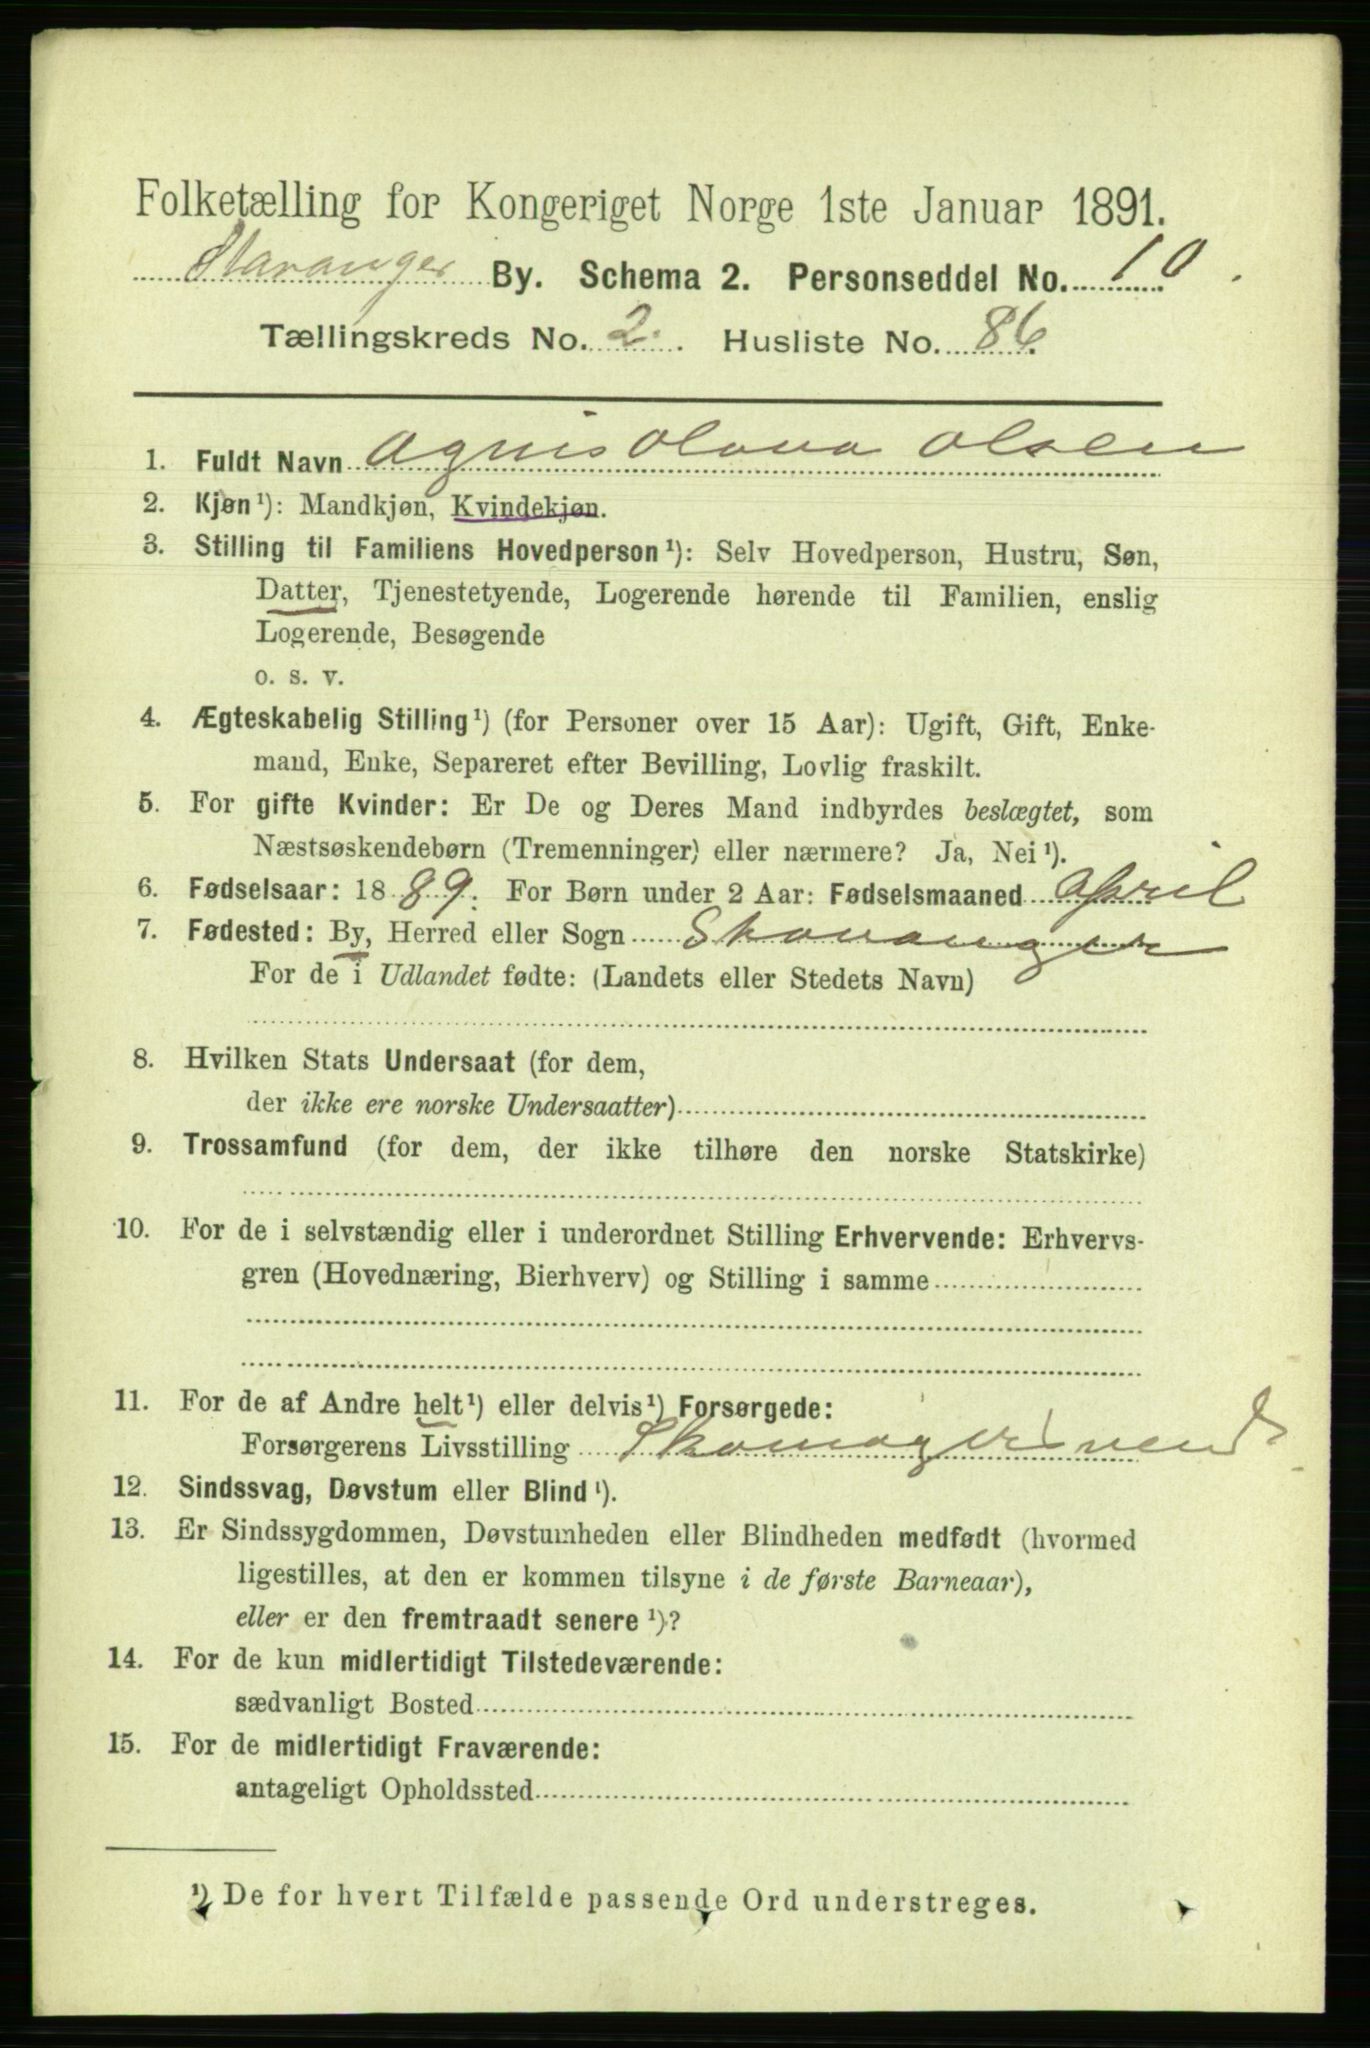 Folketælling for Kongeriget Norge 1ste Januar 1891.
Stavanger By. Schema 2. Personseddel No. 10.
Tællingskreds No. 2. Husliste No. 86.
1. Fuldt Navn Agnis Olava Olsen
2. Kjøn¹): Mandkjøn, Kvindekjøn.
3. Stilling til Familiens Hovedperson¹): Selv Hovedperson, Hustru, Søn,
Datter, Tjenestetyende, Logerende hørende til Familien, enslig
Logerende, Besøgende
o. s. v.
4. Ægteskabelig Stilling¹) (for Personer over 15 Aar): Ugift, Gift, Enke-
mand, Enke, Separeret efter Bevilling, Lovlig fraskilt.
5. For gifte Kvinder: Er De og Deres Mand indbyrdes beslægtet, som
Næstsøskendebørn (Tremenninger) eller nærmere? Ja, Nei¹).
6. Fødselsaar: 1889. For Børn under 2 Aar: Fødselsmaaned April
7. Fødested: By, Herred eller Sogn Stavanger
For de i Udlandet fødte: (Landets eller Stedets Navn)
8. Hvilken Stats Undersaat (for dem,
der ikke ere norske Undersaatter)
9. Trossamfund (for dem, der ikke tilhøre den norske Statskirke)
10. For de i selvstændig eller i underordnet Stilling Erhvervende: Erhvervs-
gren (Hovednæring, Bierhverv) og Stilling i samme
11. For de af Andre helt¹) eller delvis¹) Forsørgede:
Forsørgerens Livsstilling Skomagersvend
12. Sindssvag, Døvstum eller Blind¹).
13. Er Sindssygdommen, Døvstumheden eller Blindheden medfødt (hvormed
ligestilles, at den er kommen tilsyne i de første Barneaar),
eller er den fremtraadt senere¹)?
14. For de kun midlertidigt Tilstedeværende:
sædvanligt Bosted
15. For de midlertidigt Fraværende:
antageligt Opholdssted
¹) De for hvert Tilfælde passende Ord understreges.